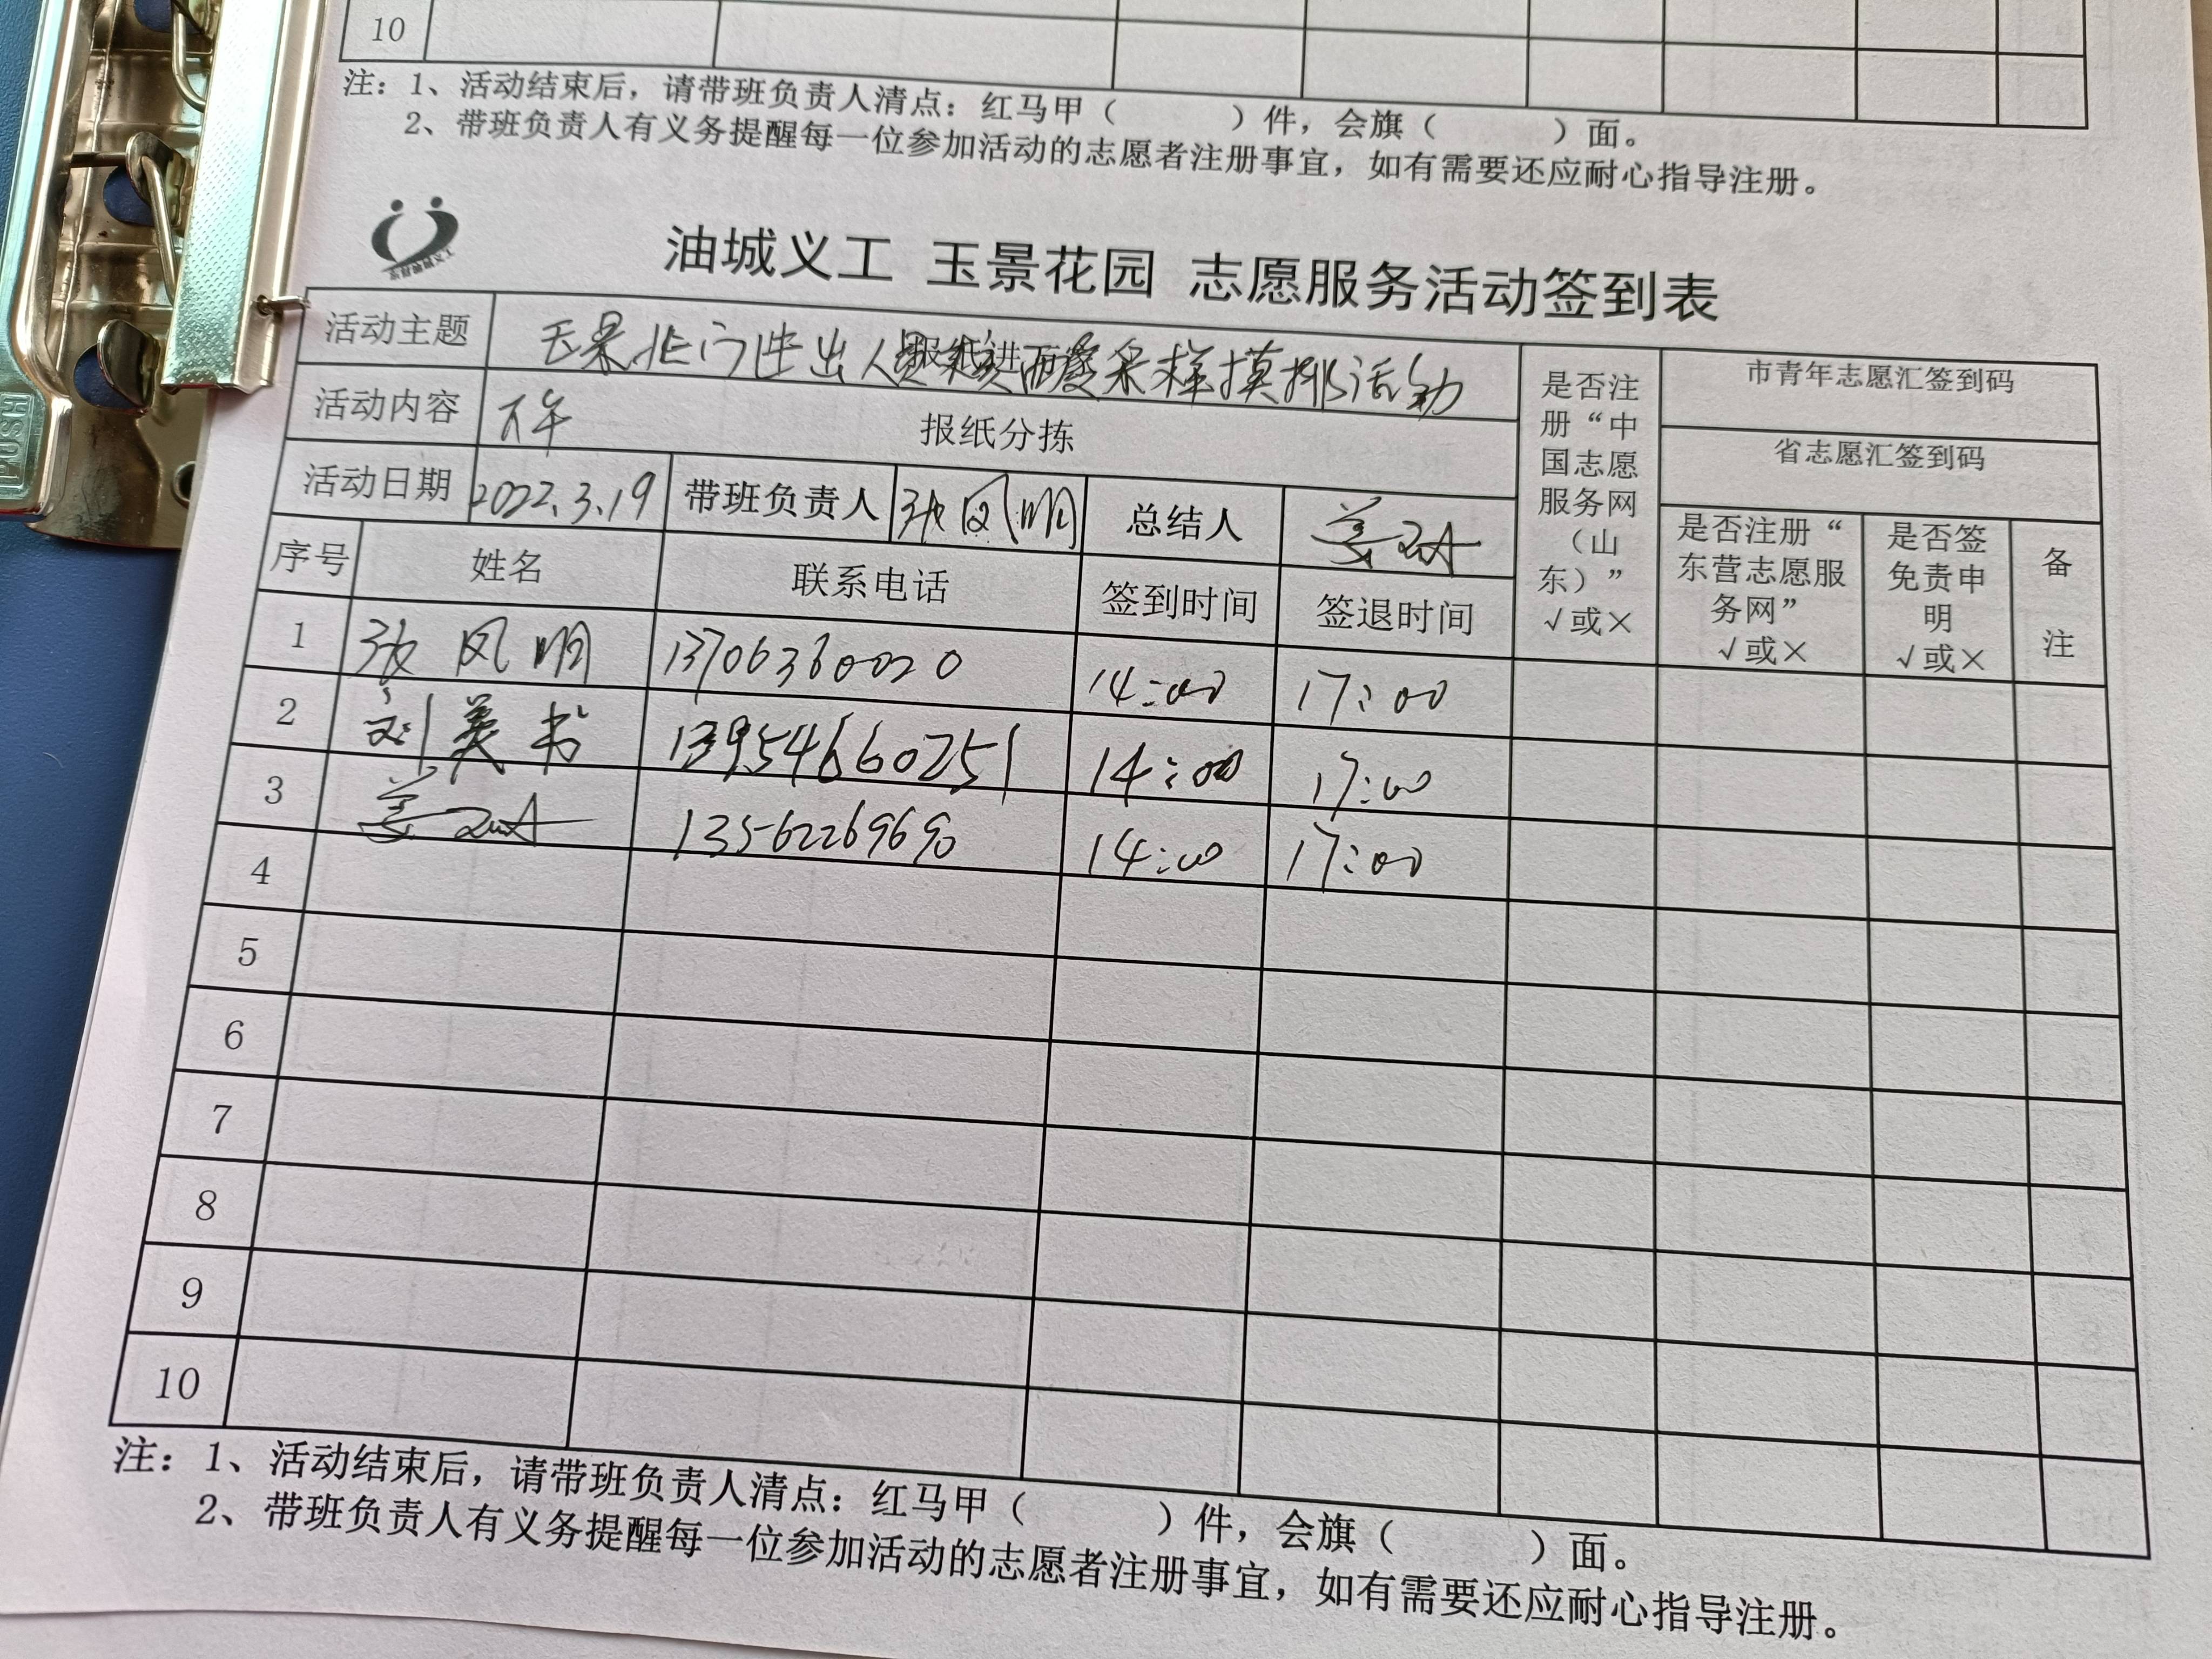 10
注：1、活动结束后，请带班负责人清点：红马甲（　　　）件，会旗（　　　）面。
2、带班负责人有义务提醒每一位参加活动的志愿者注册事宜，如有需要还应耐心指导注册。
油城义工 玉景花园 志愿服务活动签到表
活动主题 玉景北门进出人员 采样摸排活动
活动内容 下午 报纸分拣
活动日期 2022.3.19 带班负责人 张凤明 总结人 姜
是否注册“中国志愿服务网（山东）”√或×
市青年志愿汇签到码
省志愿汇签到码
序号 姓名 联系电话 签到时间 签退时间 是否注册“东营志愿服务网”√或× 是否签免责申明√或× 备注
1 张凤明 13706360020 14:00 17:00
2 刘美书 13954660251 14:00 17:00
3 姜 13562269690 14:00 17:00
4
5
6
7
8
9
10
注：1、活动结束后，请带班负责人清点：红马甲（　　　）件，会旗（　　　）面。
2、带班负责人有义务提醒每一位参加活动的志愿者注册事宜，如有需要还应耐心指导注册。
PUSH